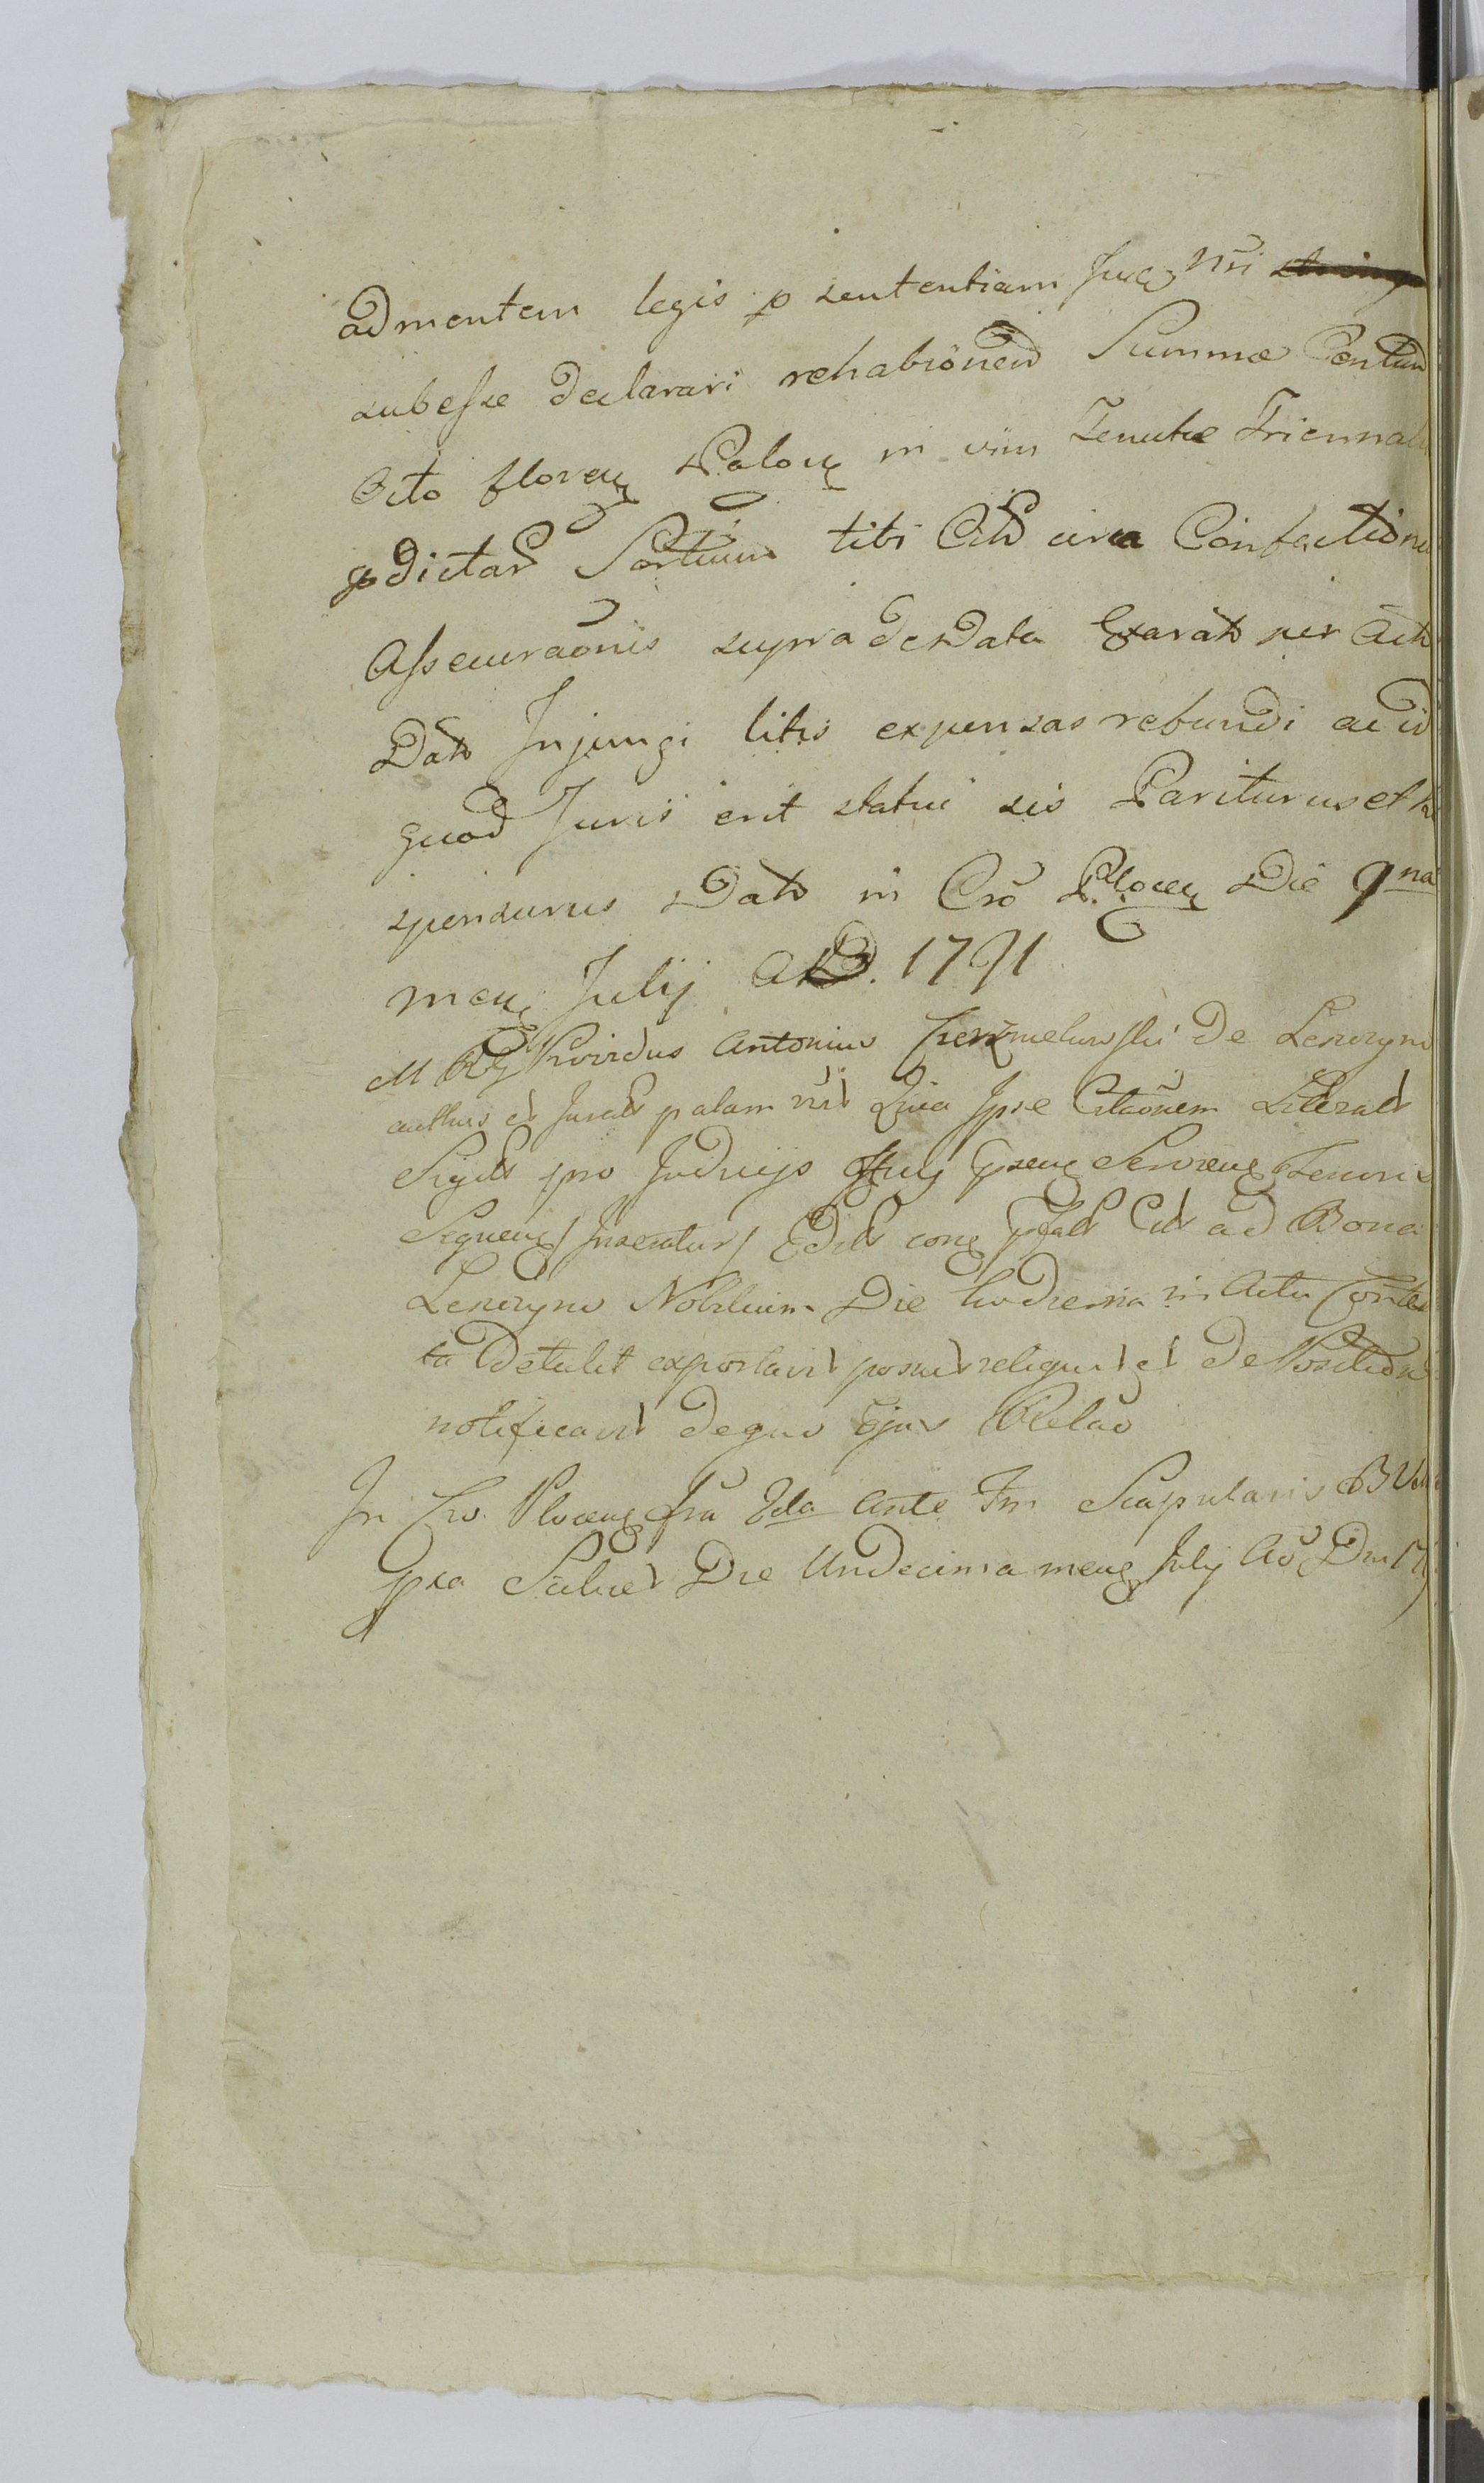 ad mentem legis p sententiam Nri
subesse declarari rehabionem Summæ Centum
Octo floren Polon in vim Tenutæ Triennal
pdictar Sortium tibi Citt circa Confectione
Assecuraonis supra de Data Exarat per Act
Dat Injungi litis expensas refundi ac id
quod Juris erit statui sis Pariturus et re
spensurus Dat in Cro Plocen Die 9na
men Julij AD. 1791
M Rg Providus Antonius de
authus et Jurat palam rlt Quia Ipse Citaonem Literal
Sigill pro Judicijs Tenoris
Sequen / Inseratur / Edit ad Bona
Nobilium Die hodierna in Actu Conten
ta Detulit exportavit posuit reliquit et de Positione
notificavit de quo Ejus Relao
In Cro Plocen Fra 2da Ante Fm Scapularis BV
Ipsa Scilicet Die Undecima men Julij Ao Dni 17